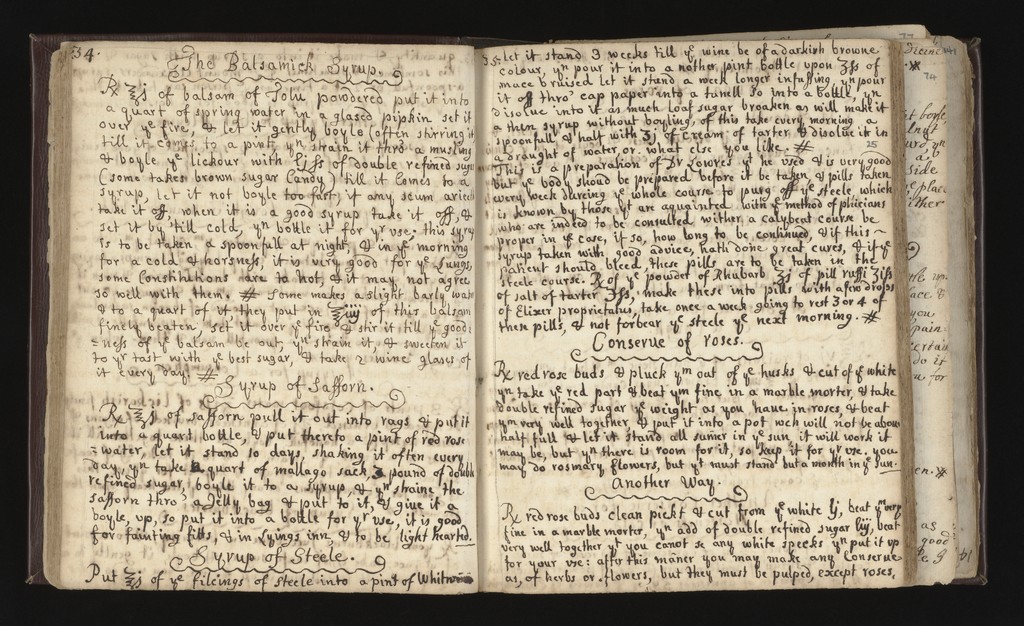 34.
The Balsamick Syrup.
℞ ℥j of balsam of Tolu powdered put it into
a quart of spring water in a glased pipskin set it
over yᵉ fire, & let it gently boyle (often stirring it
till it comes to a pint, yⁿ strain it thro a musling
& boyle yᵉ lickour with of double refined sugar
(some takes brown sugar Candy) till it comes to a
syrup, let it not boyle too fast, if any scum aries
take it off, when it is a good syrup take it off, &
set it by till cold, yⁿ bottle it for yʳ use. this syrup
is to be taken, a spoonfull at night, & in yᵉ morning
for a cold & horsness, it is very good for yᵉ Lungs,
some Constitutions are to hot, & it may not agree
so well with them. # some makes a slight barly water
& to a quart of yᵗ they put in ℥iiij of this balsam
finely beaten, set it over yᵉ fire & stir it till yᵉ good
=ness of yᵉ balsam be out, yⁿ strain it, & sweeten it
to yʳ tast with yᵉ best sugar, & take 2 wine glases of
it every day. #
Syrup of Safforn.
℞ ℥j of safforn pull it out into rags & put it
into a quart bottle, & put thereto a pint of red rose
=water, let it stand 10 days, shaking it often every
day, yⁿ take a quart of mallago sack 3 pound of double
refined sugar, boyle it to a syrup, & yⁿ straine the
safforn thro' a Jelly bag & put to it, & give it a
boyle, up, so put it into a bottle for yʳ use, it is good
for fainting fitts, & in Lyings inn, & to be light hearted.
Syrup of Steele.
Put of yᵉ fileings of steele into a pint of Whitwine
35. let it stand 3 weeks till yᵉ wine be of a darkish browne
colour, yⁿ pour it into a nother pint bottle upon ℥ss of
mace bruised let it stand a week longer infusing yⁿ pour
it off thro' cap paper into a tunell so into a bottle, yⁿ
disolue into it as much loaf sugar broaken as will make it
a then syrup without boyling, of this take every morning a
spoonfull & half with ʒj of cream of tarter & disolue it in
a draught of water, or what else you like. #
25
This is a preparation of Dʳ Lowres yᵗ he used & is very good
but yᵉ body shoud be prepared before it be taken, & pills taken
every week dureing yᵉ whole course to purg off yᵉ steele which
is known by those yᵗ are aquainted with yᵉ method of phicians
who are indeed to be consulted wither a calybeat course be
proper in yᵉ case, if so, how long to be continued, & if this ~
syrup taken with good advice, hath done great cures, & if yᵉ
patient should bleed, these pills are to be taken in the
steele course. ℞ of yᵉ powder of Rhubarb ʒj of pill ruffi ʒiss
of salt of tarter ʒss, make these into pills with a few drops
of Elixer proprietatus, take once a week going to rest 3 or 4 of
then pills, & not forbear yᵉ steele yᵉ next morning. #
Conserue of roses.
℞ red rose buds & pluck yᵐ out of yᵉ husks & cut of yᵉ white
yⁿ take yᵉ red part & beat yᵐ fine in a marble morter, & take
double refined sugar yᵉ weight as you have in roses, & beat
yᵐ very well together, & put it into a pot wch will not be above
half full & let it stand all sumer in yᵉ sun, it will work it
may be, but yⁿ there is room for it, so keep it for yʳ use. you
may do rosmary flowers, but yᵗ must stand but a month in yᵉ sun.
Another Way.
℞ red rose buds clean pickt & cut from yᵉ white , beat yᵐ very
fine in a marble morter, yⁿ add of double refined sugar , beat
very well together yᵗ you canot se any white specks yⁿ put it up
for your use: after this maner you may make any Conserue
as, of herbs or flowers, but they must be pulped, except roses.